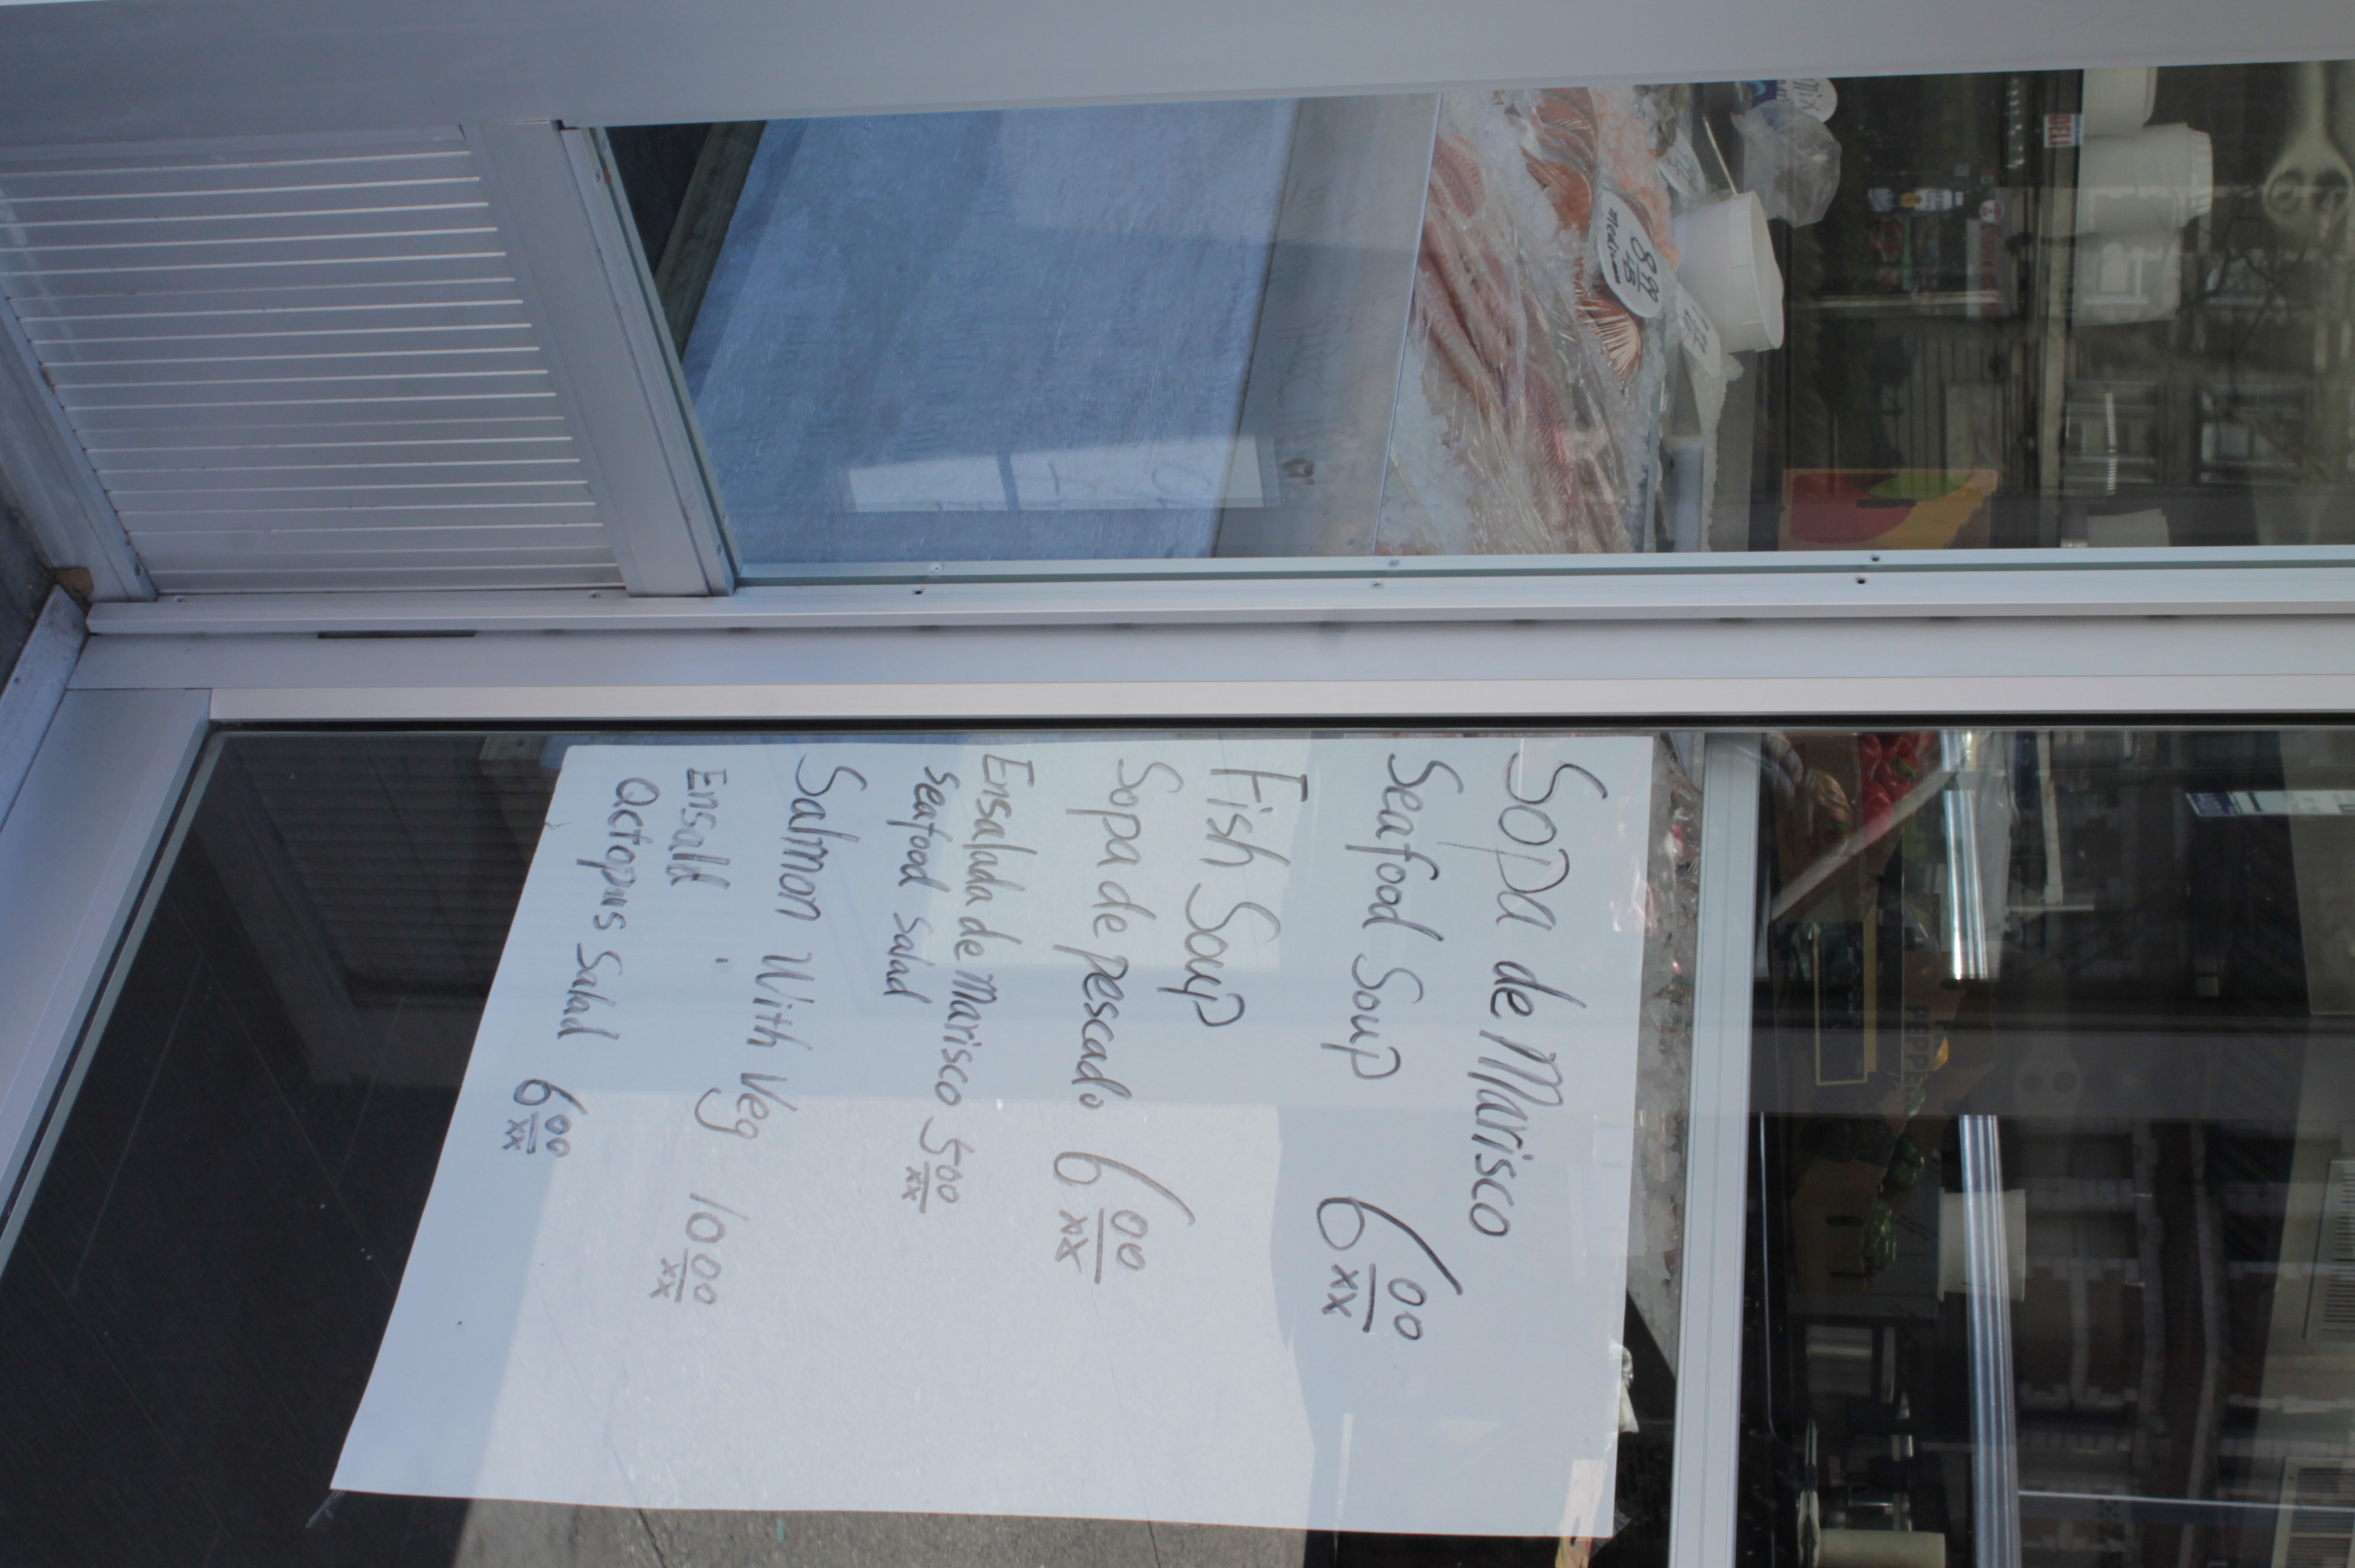 DELI
PEPPE
Mix
8.99
LB
Medium
Sopa de Marisco
Seafood Soup 6 00/xx
Fish Soup
Sopa de pescado 6 00/xx
Ensalada de Marisco 5 00/xx
seafood salad
Salmon With Veg 10 00/xx
Ensald
Octopus Salad 6 00/xx